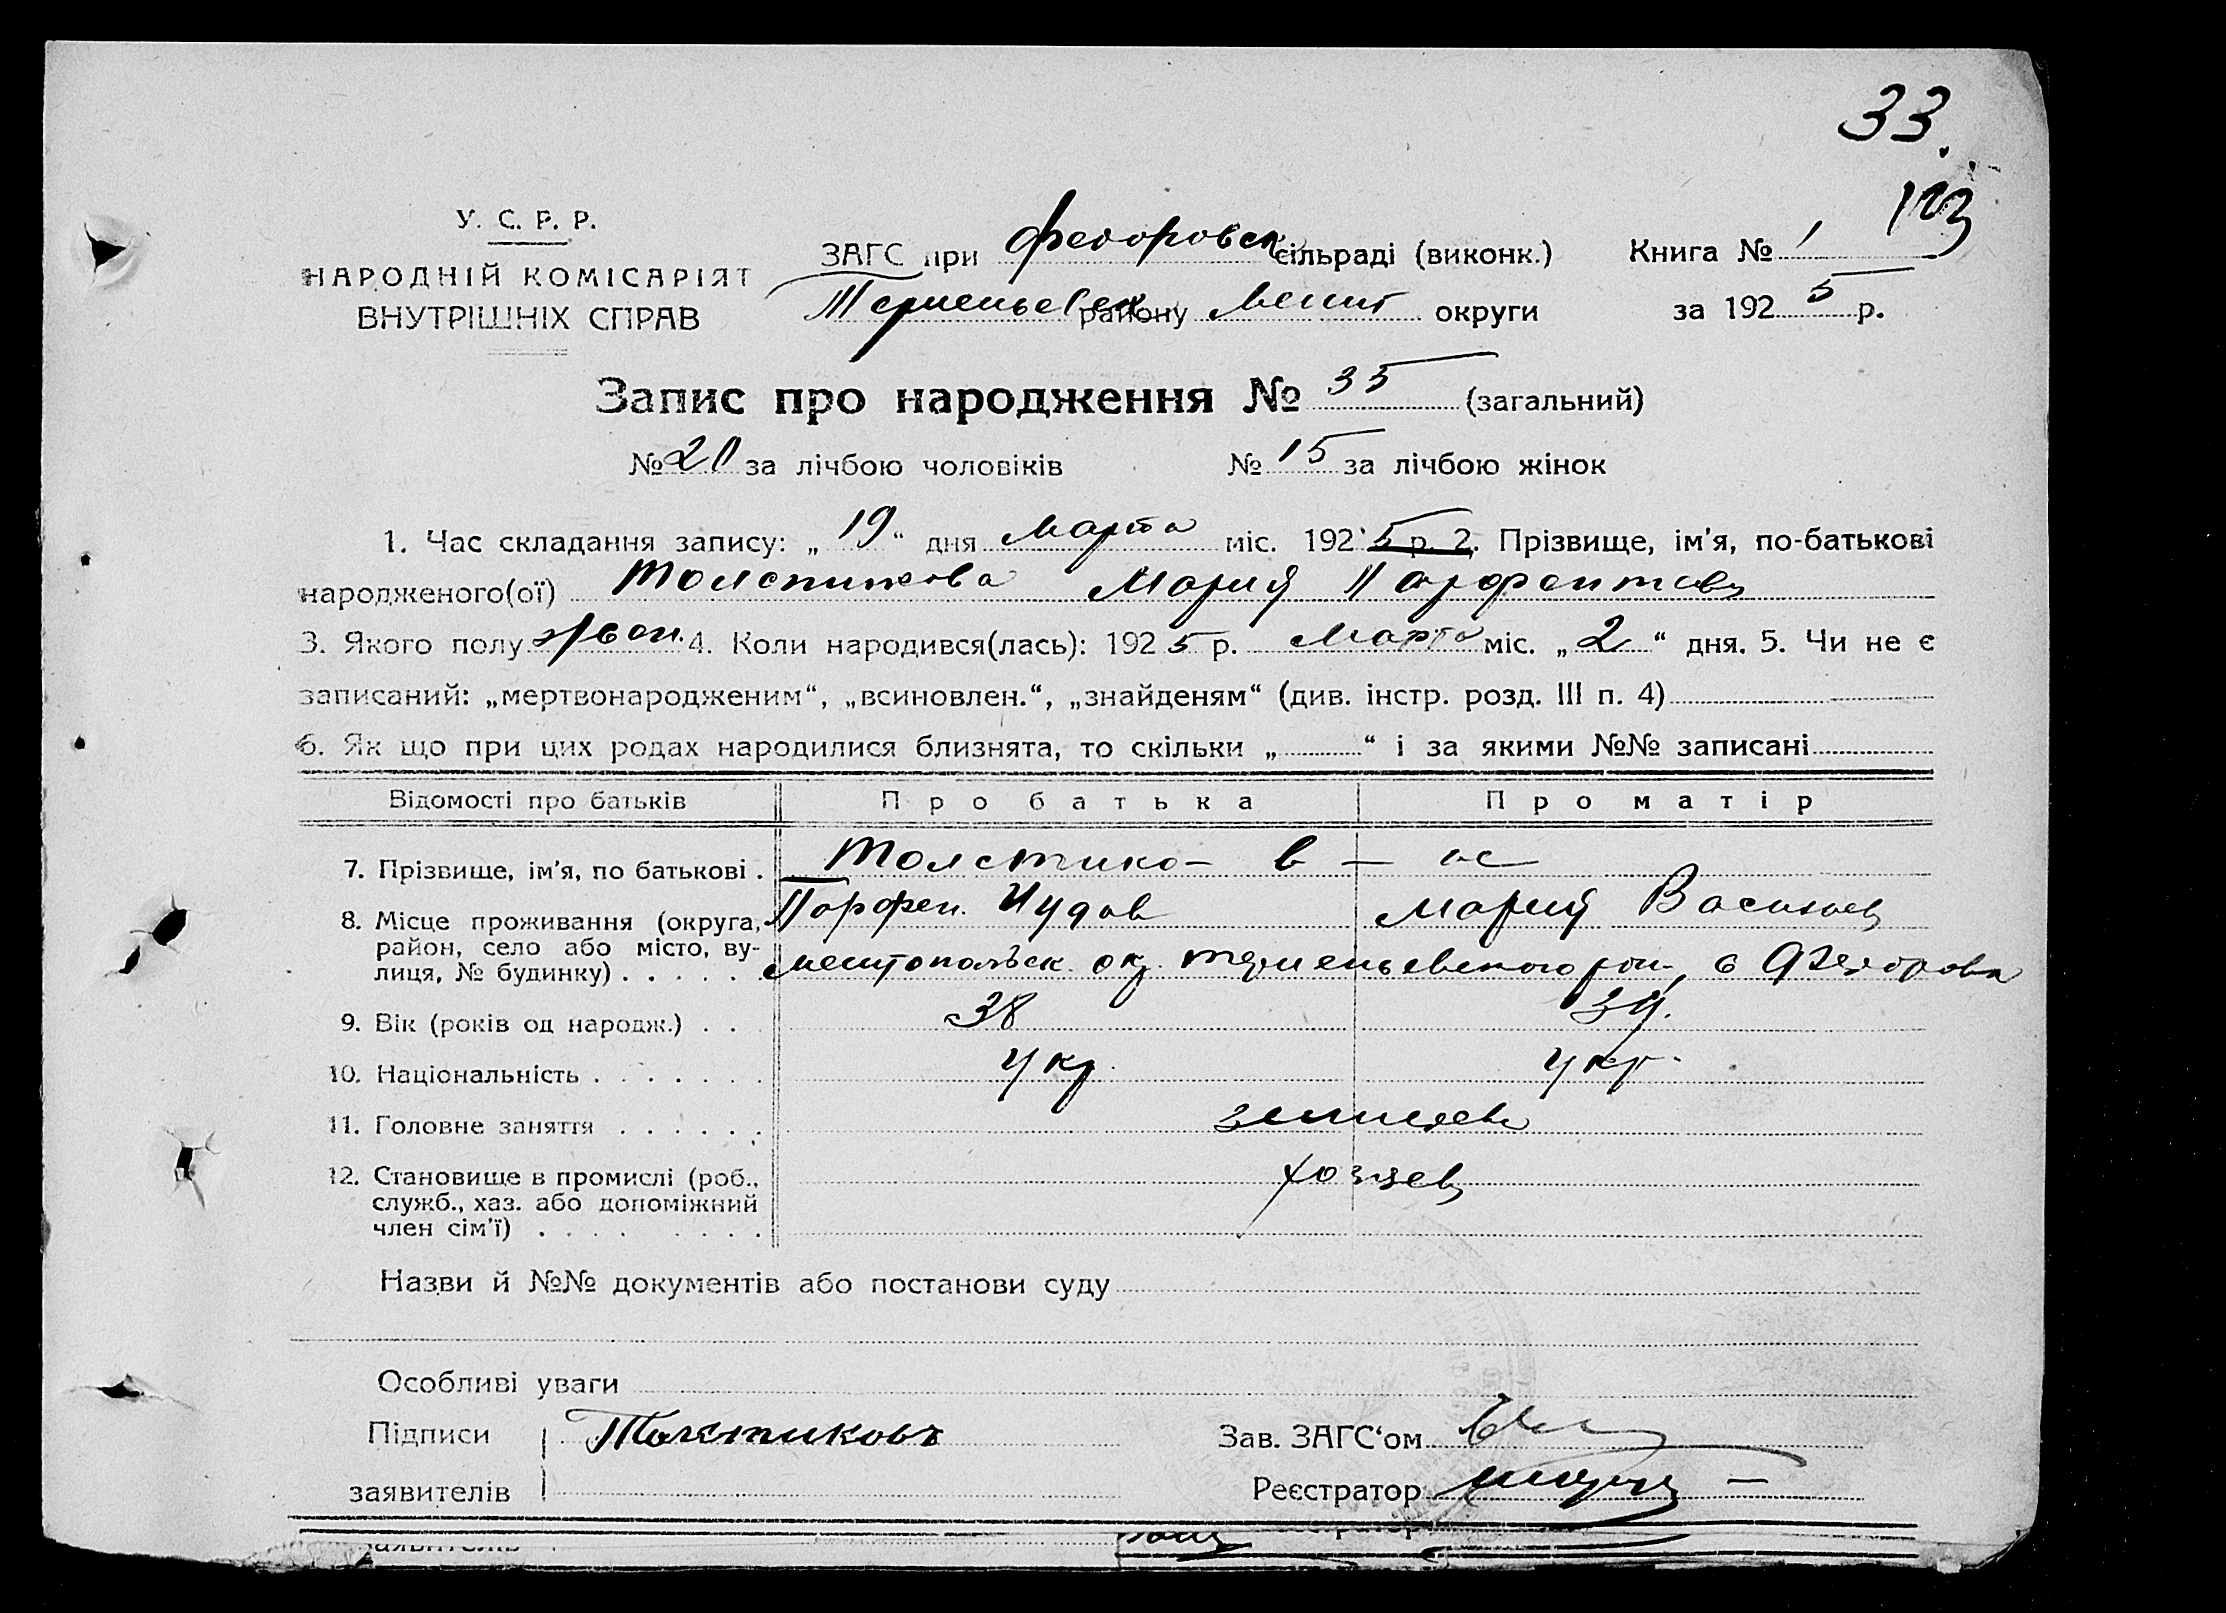 33.
У. С. Р. Р.
НАРОДНІЙ КОМІСАРІЯТ
ВНУТРІШНІХ СПРАВ
ЗАГС при Федоровск сільраді (виконк.) Книга № 1
району Мелит округи за 1925 р.
Запис про народження № 35 (загальний)
№ 20 за лічбою чоловіків № 15 за лічбою жінок
1. Час складання запису: „19“ дня Марта міс. 1925 р. 2. Прізвище, ім'я, по-батькові
народженого(ої) Толстикова Мария Парфентьев
3. Якого полу жен. 4. Коли народився(лась): 1925 р. Марта міс. „2“ дня. 5. Чи не є
записаний: „мертвонародженим“, „всиновлен.“, „знайденям“ (див. інстр. розд. III п. 4)
6. Як що при цих родах народилися близнята, то скільки „ “ і за якими №№ записані
Відомості про батьків Про батька Про матір
7. Прізвище, ім'я, по батькові . Толстико – в –
Парфен. Иудов Мария Васильев
8. Місце проживання (округа,
район, село або місто, ву-
лиця, № будинку) . . . . . Мелитопольск. окр.
9. Вік (років од народж.) . . 38 39.
10. Національність . . . . . . . укр. укр.
11. Головне заняття . . . . . .
12. Становище в промислі (роб.,
служб., хаз. або допоміжний
член сім'ї) . . . . . . . . хозяев
Назви й №№ документів або постанови суду
Особливі уваги
Підписи Толстиковъ Зав. ЗАГС‘ом
заявителів Реєстратор